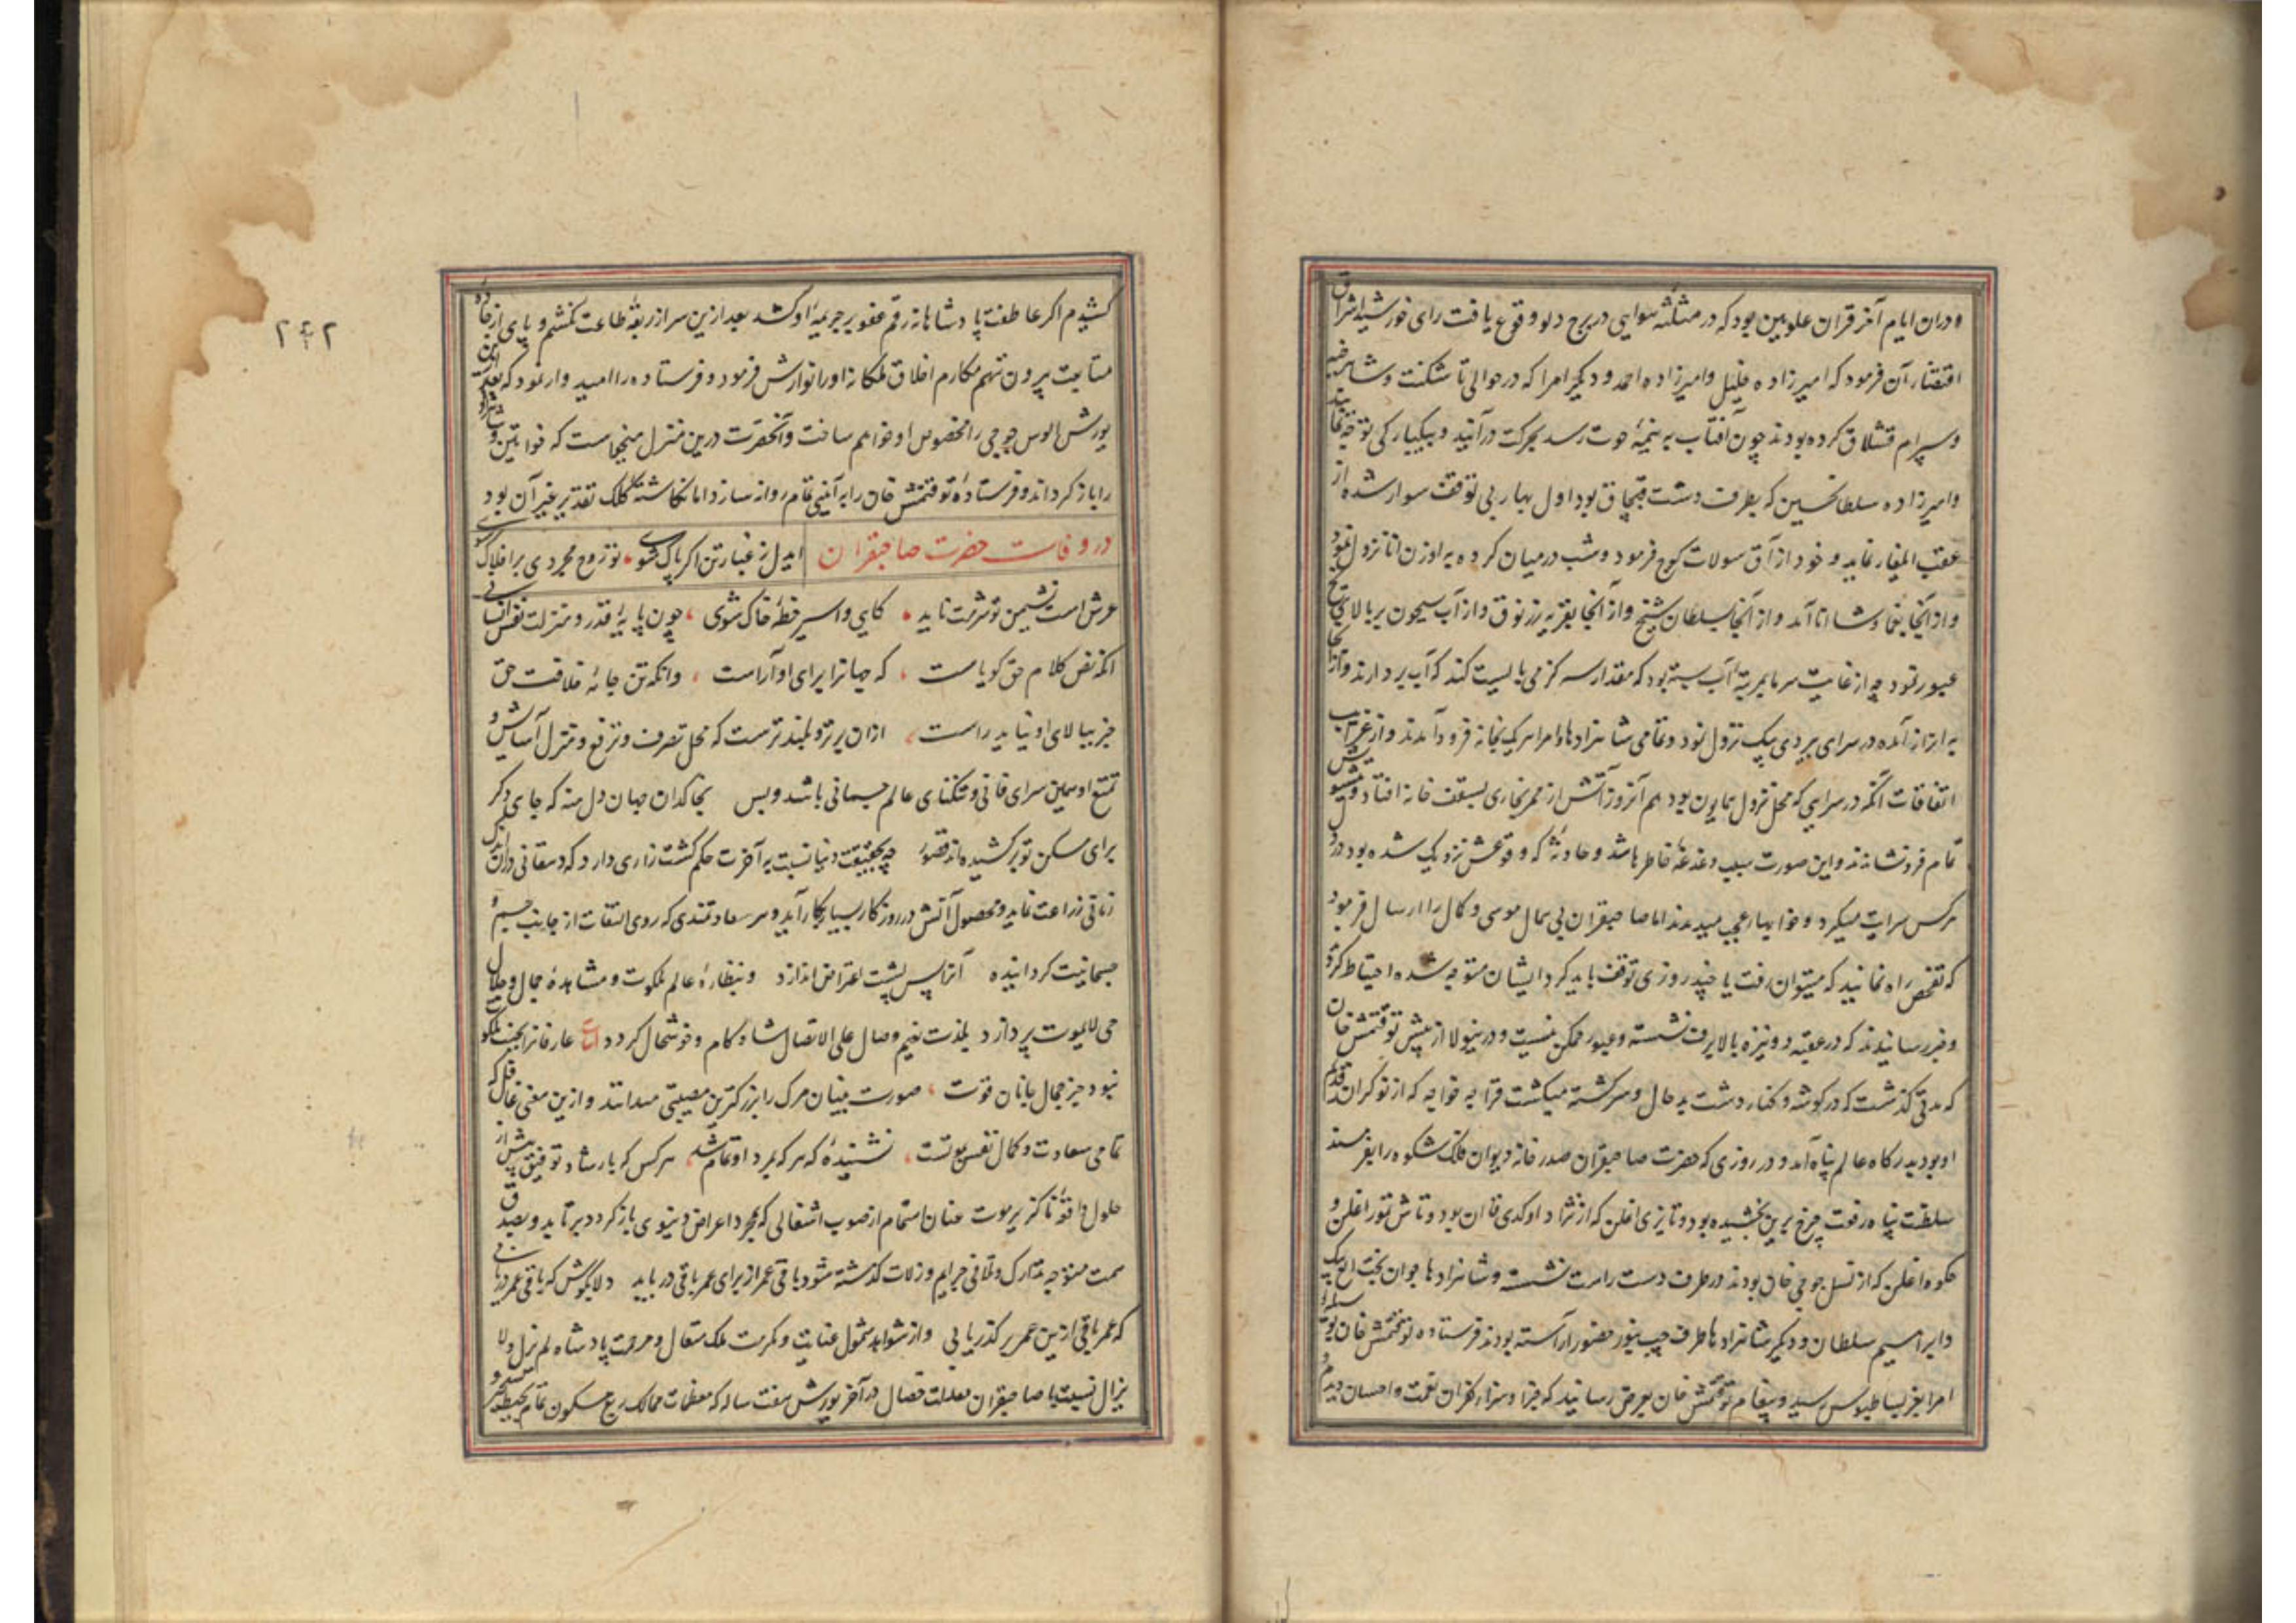 ودران ایام آخر قران علویین بود که در مثلثه هوایی در برج دلو وقوع یافت رای خورشید اشراق
اقتضاء آن فرمود که امیرزاده خلیل وامیرزاده احمد ودیگر امرا که در حوالی تاشکنت وشاهرخیه
وسیرام قشلاق کرده بودند چون آفتاب به نیمهٔ حوت رسد بحرکت درآیند وبیکبارکی توجه نمایند
وامیرزاده سلطانحسین که بطرف دشت قبچاق بود اول بهار بی توقف سوار شده از
عقب ایلغار نماید و خود از آق سولات کوچ فرمود وشب درمیان کرده به اوزن اتا نزول نمود
واز آنجا شا اتا آمد واز آنجا بسلطان شیخ واز آنجا بقریه زرنوق واز آب سیحون بر بالای یخ
عبور نمود چه از غایت سرما بمرتبهٔ آب بسته بود که مقدار سه کز می بایست کند که آب بردارند واز آنجا
به اترار آمده در سرای بردی بیک نزول نمود وتمامی شاهزادها وامرا هریک بخانه فرود آمدند واز غرایب
اتفاقات انکه در سرایی که محل نزول همایون بود هم آنروز آتش از ممر بخاری بسقف خانه افتاد
تمام فرونشاندند واین صورت سبب دغدغهٔ خاطرها شد و حادثهٔ که وقوعش نزدیک شده بود در دل
هرکس سرایت میکرد و خوابهاء عجب میدیدند اما صاحبقران بی همال موسی وکال را ارسال فرمود
که تفحص راه نمایند که میتوان رفت یا چند روزی توقف باید کرد ایشان متوجه شده احتیاط کردند
وخبر رسانیدند که در عقبه دو نیزه بالا برف نشسته وعبور ممکن نیست ودرینولا از پیش توقتمش خان
که مدتی گذشت که در کوشه و کنار دشت بد حال وسرگشته میگشت قرا به خواجه که از نوکران قدیم
او بود بدرگاه عالم پناه آمد و در روزی که حضرت صاحبقران صدر خانه دیوان فلک شکوه را بفر مسند
سلطنت پناه رفعت چرخ برین بخشیده بود و تایزی اغلن که از نژاد اوکدی قاان بود وتاش تمور اغلن و
حکوه اغلن که از نسل جوجی خان بودند در طرف دست راست نشسته وشاهزادها جوان بخت الغ بیک
وابراهیم سلطان ودیگر شاهزادها طرف چپ بنور حضور آراسته بودند فرستاده توقتمش خان بوسیلهٔ
امرا بعز بساط بوس رسید وپیغام توقتمش خان بعرض رسانید که جزا وسزاء کفران نعمت واحسان دیدم و
کشیدم اکر عاطفت پادشاهانه رقم عفو بر جریمهٔ او کشد بعد ازین سر از ربقهٔ طاعت نکشم و پای از جاده
متابعت بیرون ننهم مکارم اخلاق ملکانه اورا نوازش فرمود و فرستاده را امیدوار نمود که بعد ازین
یورش الوس جوجی را مخصوص او خواهم ساخت وآنحضرت درین منزل میخواست که خواتین وشاهزادها
را باز کرداند وفرستادهٔ توقتمش خان را به آیینی تمام روانه سازد اما نکاشتهٔ کلک تقدیر غیر آن بود
در وفات حضرت صاحبقران ایدل ز غبار تن اکر پاک شوی تو روح مجردی بر افلاک شوی
عرش است نشیمن تو شرمت ناید کایی واسیر خطهٔ خاک شوی چون پایهٔ قدر و منزلت نفس انسانی
انکه نص کلام حق کویاست که جهانرا برای او آراست وانکه تن جامهٔ خلافت حق
جز ببالای او نیاید راست ازان برتر و بلند ترست که محل تصرف وترفع ومنزل آسایش و
تمتع او همین سرای فانی وتنکنای عالم جسمانی باشد وبس بخاکدان جهان دل منه که جای دکر
برای مسکن تو برکشیده اند قصور چه بحقیقت دنیا نسبت به آخرت حکم کشت زاری دارد که دهقانی دران اندک
زمانی زراعت نماید ومحصول آتش در روزکار بسیار بکار آید و هر سعادتمندی که روی التفات از جانب جسم و
جسمانیت کردانیده آنرا پس پشت اعراض اندازد وبنظارهٔ عالم ملکوت و مشاهدهٔ جمال وجلال
حی لایموت پردازد بلذت نعیم وصال علی الاتصال شاد کام وخوشحال کردد عارفانرا بجنت ملکوت
نبود جز جمال جانان قوت صورت بینان مرک را بزرکترین مصیبتی میدانند وازین معنی غافل که
تمامی سعادت وکمال نفس بموتست نشنیدهٔ که هر که بمرد او تمام شد هر کس که بارشاد توفیق پیش از
حلول واقعهٔ ناکزیر موت عنان اهتمام از صوب اشغالی که بمجرد اعراض دنیوی بازکردد برتابد وبصدق
همت متوجه تدارک وتلافی جرایم وزلات کذشته شود باقی عمر از برای عمر باقی دریابد دلا بکوش که باقی عمر دریابی
که عمر باقی ازین عمر برکذر یابی واز شواهد شمول عنایت ومکرمت ملک متعال ومرحمت پادشاه لم یزل ولا
یزال نسبت با صاحبقران معدلت خصال در آخر یورش هفت ساله که معظمات ممالک ربع مسکون تمام بحیطه تسخیر
۲۴۲